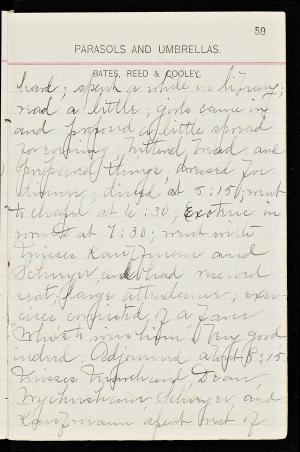 59
PARASOLS AND UMBRELLAS.
BATES, REED & COOLEY,
hard; spent a while in library;
read a little; girls came in
and proposed a little spread
for evening; buttered bread and
prepared things; dressed for
dinner; dined at 5:15; went
to chapel at 6:30; Exoteric in
at 7:30; went with
Misses Kauffmann and
Schryer, and had reserved
seat; large attendance; exer-
cises consisted of a farce
"Who's to win him" Very good
indeed. Adjourned about 8:15.
Misses Marchand, Dean,
Schryer, and
Kauffmann spent rest of